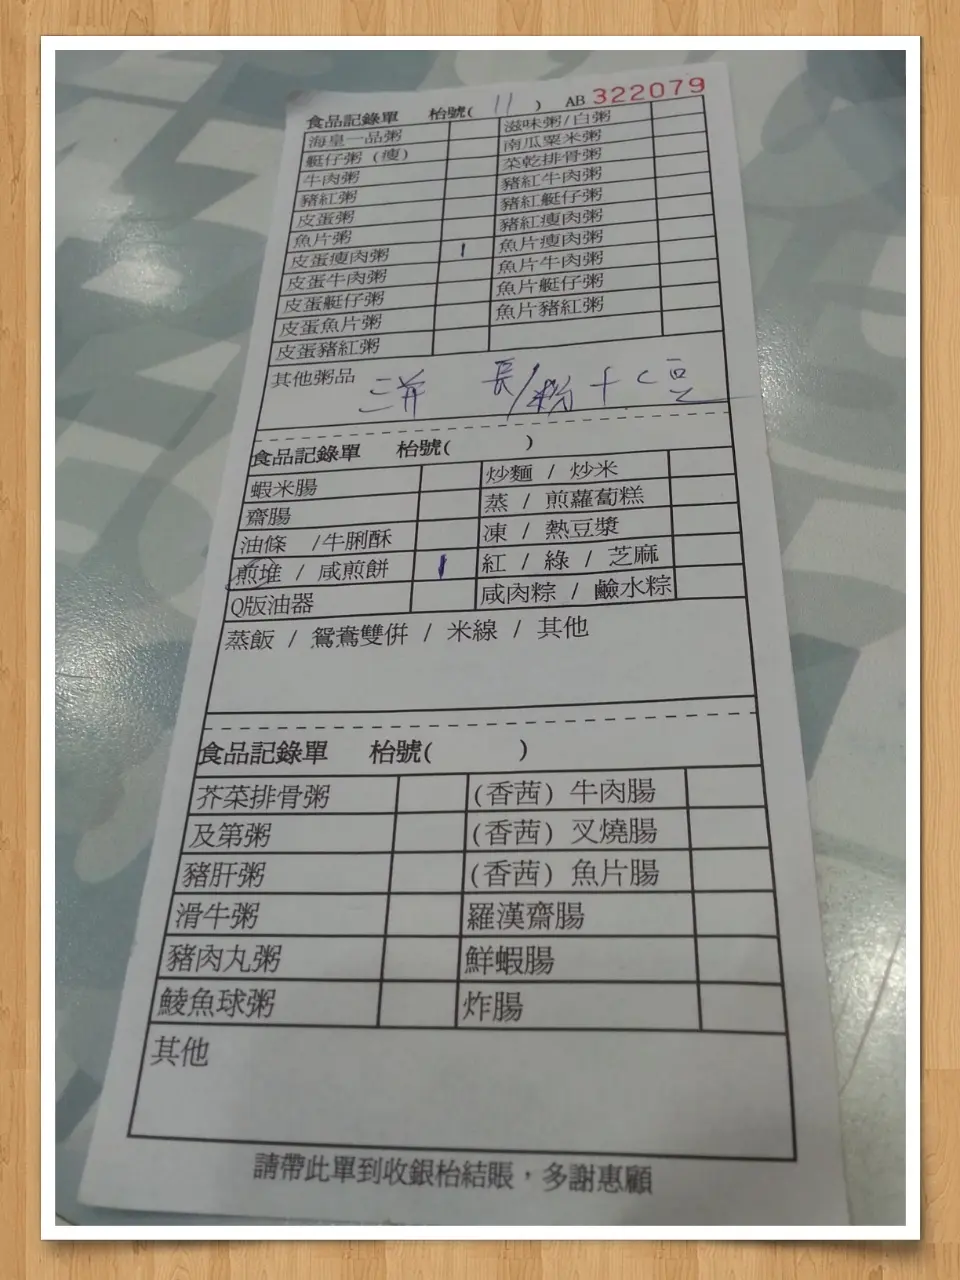 食品記錄單 枱號( 11 ) AB 322079
海皇一品粥 滋味粥/白粥
艇仔粥 (瘦) 南瓜粟米粥
牛肉粥 菜乾排骨粥
豬紅粥 豬紅牛肉粥
皮蛋粥 豬紅艇仔粥
魚片粥 豬紅瘦肉粥
皮蛋瘦肉粥 1 魚片瘦肉粥
皮蛋牛肉粥 魚片牛肉粥
皮蛋艇仔粥 魚片艇仔粥
皮蛋魚片粥 魚片豬紅粥
皮蛋豬紅粥
其他粥品
食品記錄單 枱號( )
蝦米腸 炒麵 / 炒米
齋腸 蒸 / 煎蘿蔔糕
油條 /牛脷酥 凍 / 熱豆漿
煎堆 / 咸煎餅 1 紅 / 綠 / 芝麻
Q版油器 咸肉粽 / 鹼水粽
蒸飯 / 鴛鴦雙併 / 米線 / 其他
食品記錄單 枱號( )
芥菜排骨粥 (香茜) 牛肉腸
及第粥 (香茜) 叉燒腸
豬肝粥 (香茜) 魚片腸
滑牛粥 羅漢齋腸
豬肉丸粥 鮮蝦腸
鯪魚球粥 炸腸
其他
請帶此單到收銀枱結賬，多謝惠顧